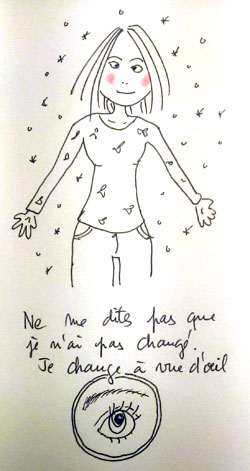 Ne me dites pas que
je n'ai pas changé.
Je change à vue d'œil